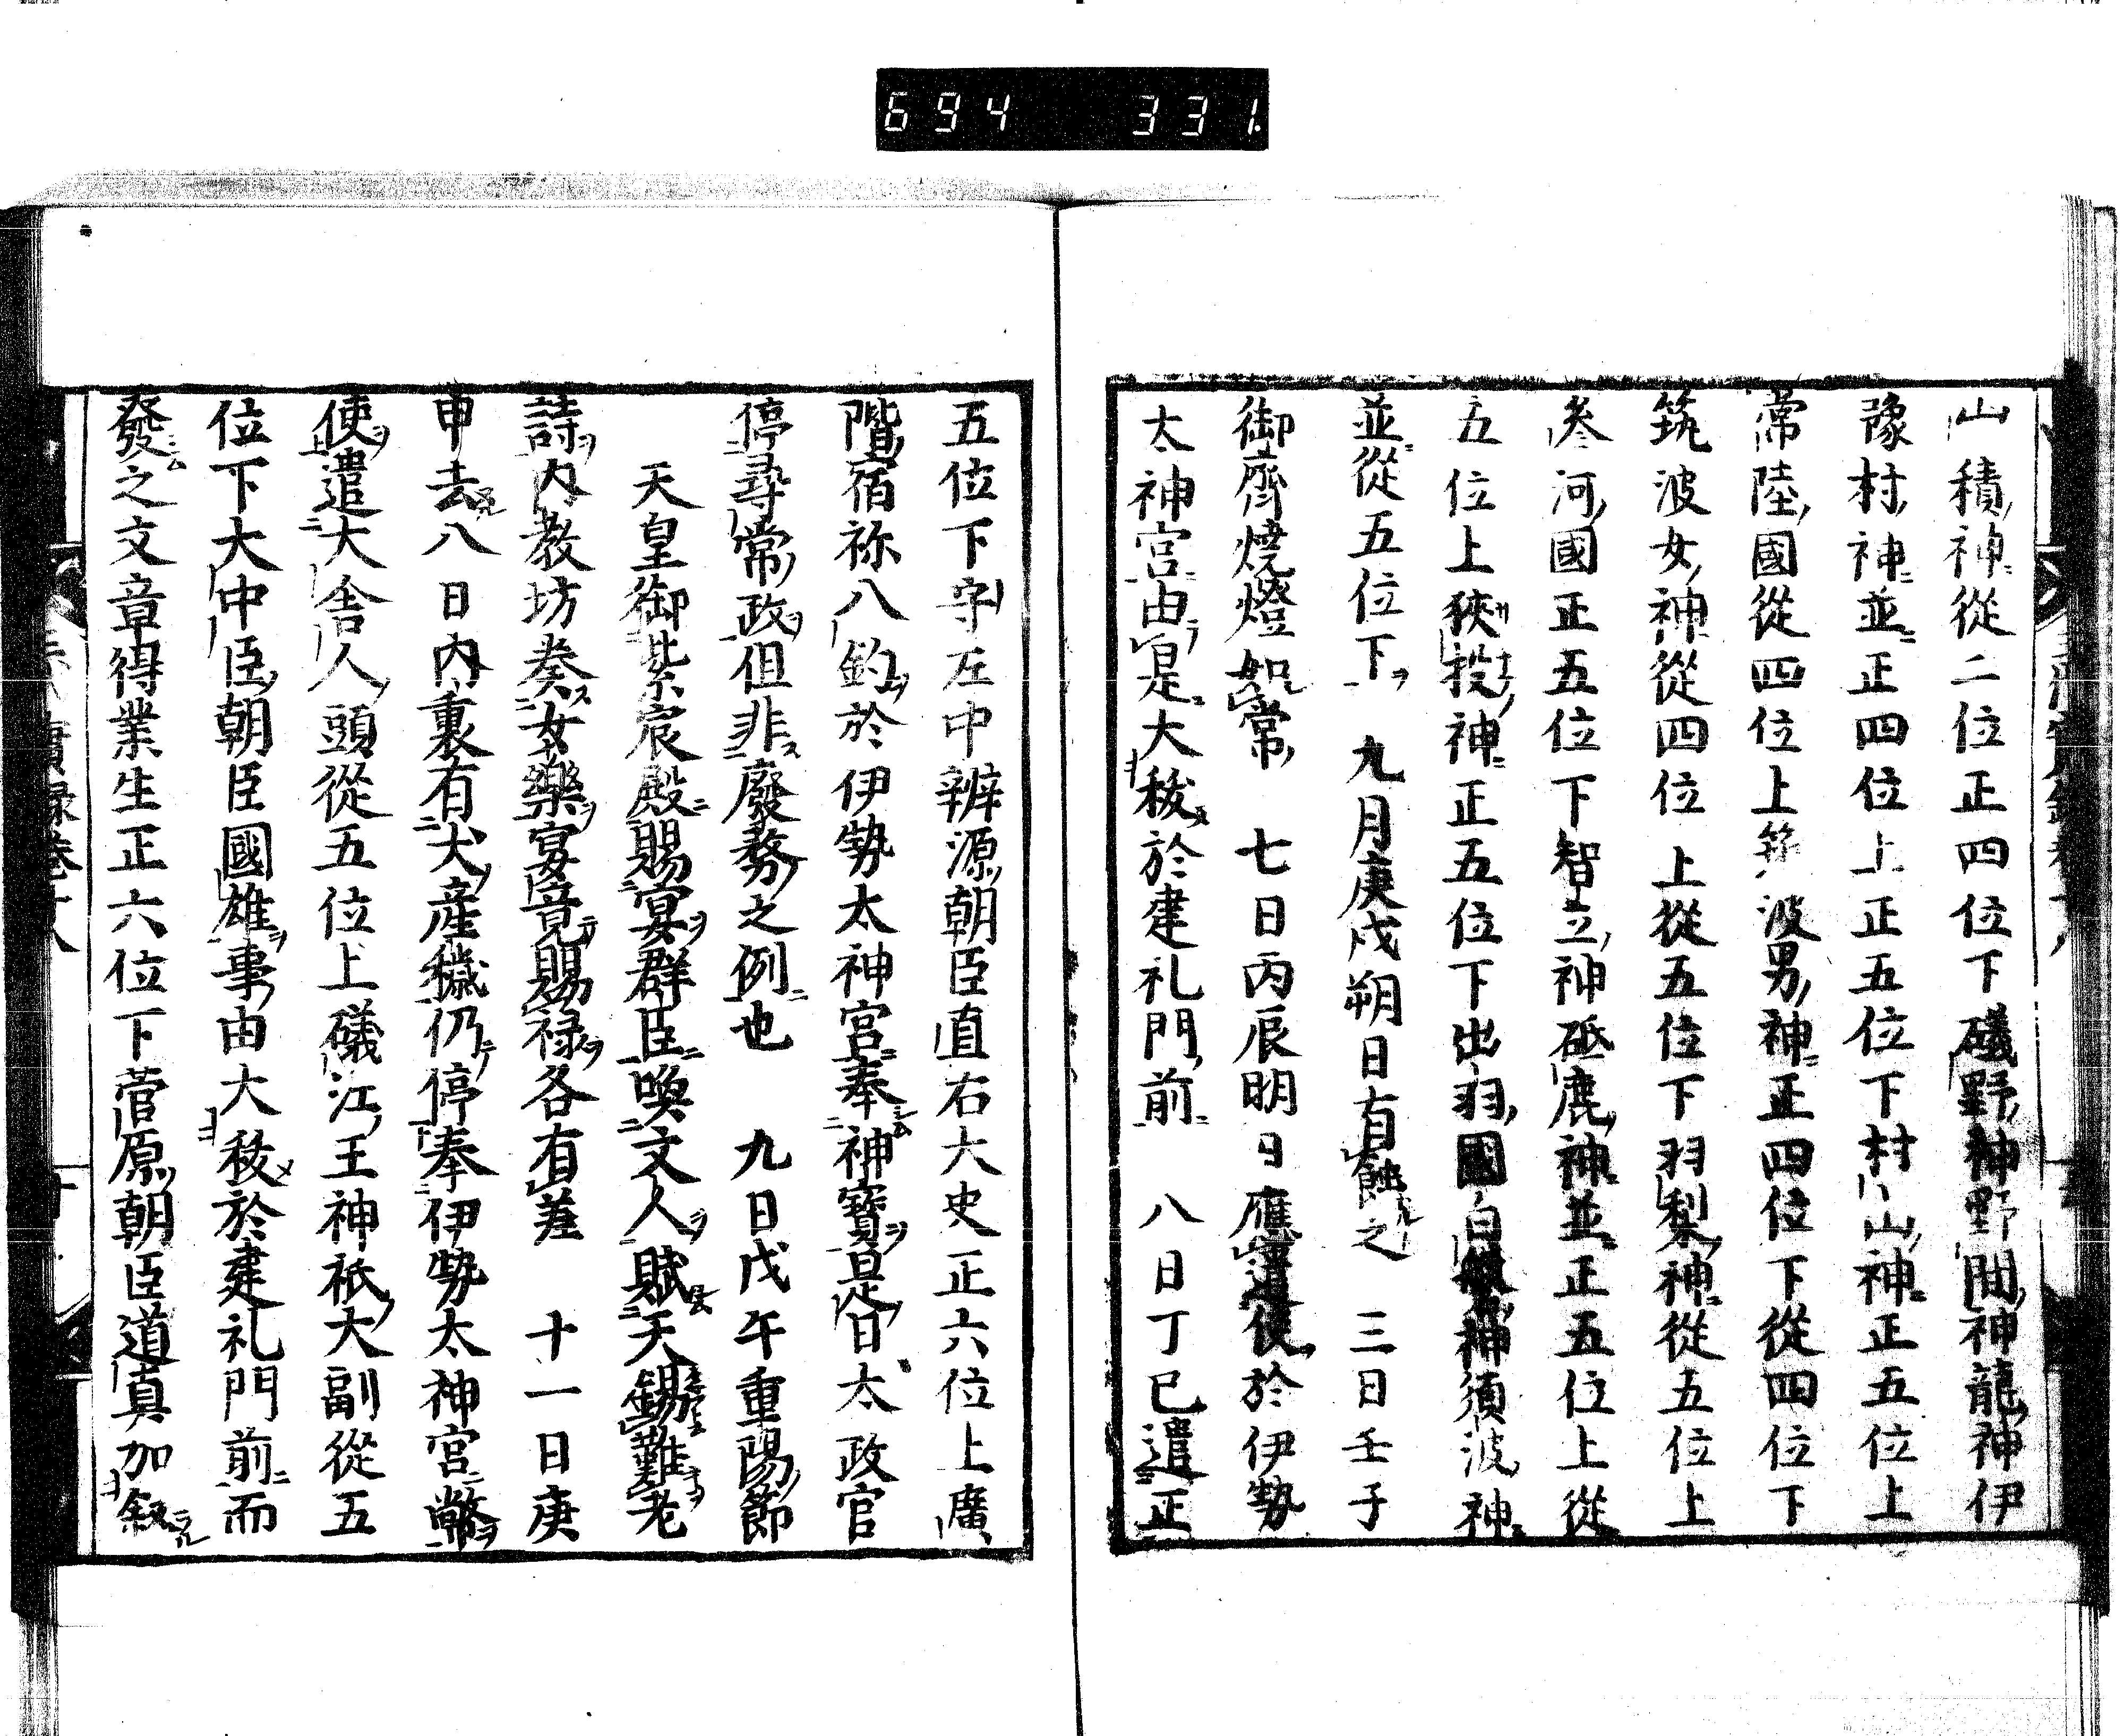 694 331
山積神從二位正四位下礒野神野間神龍神伊
豫村神並正四位上正五位下村山神正五位上
常陸國從四位上筑波男神正四位下從四位下
筑波女神從四位上從五位下羽梨神從五位上
叅河國正五位下智立神砥鹿神並正五位上從
五位上狹投神正五位下出羽國白 神須波神
並從五位下 九月庚戌朔日有蝕之 三日壬子
御齋燒燈如常 七日丙辰明日應遣使於伊勢
太神宮由是大秡於建礼門前 八日丁巳遣正
五位下守左中辨源朝臣直右大史正六位上廣
階宿祢八釣於伊勢太神宮奉神寶是日太政官
停尋常政但非廢務之例也 九日戊午重陽節
天皇御紫宸殿賜宴群臣喚文人賦天錫難老
詩内教坊奏女樂宴竟賜禄各有差 十一日庚
申去八日内裏有犬産穢仍停奉伊勢太神宮幣
使遣大舎人頭從五位上礒江王神祇大副從五
位下大中臣朝臣國雄事由大秡於建礼門前而
發之文章得業生正六位下菅原朝臣道真加叙